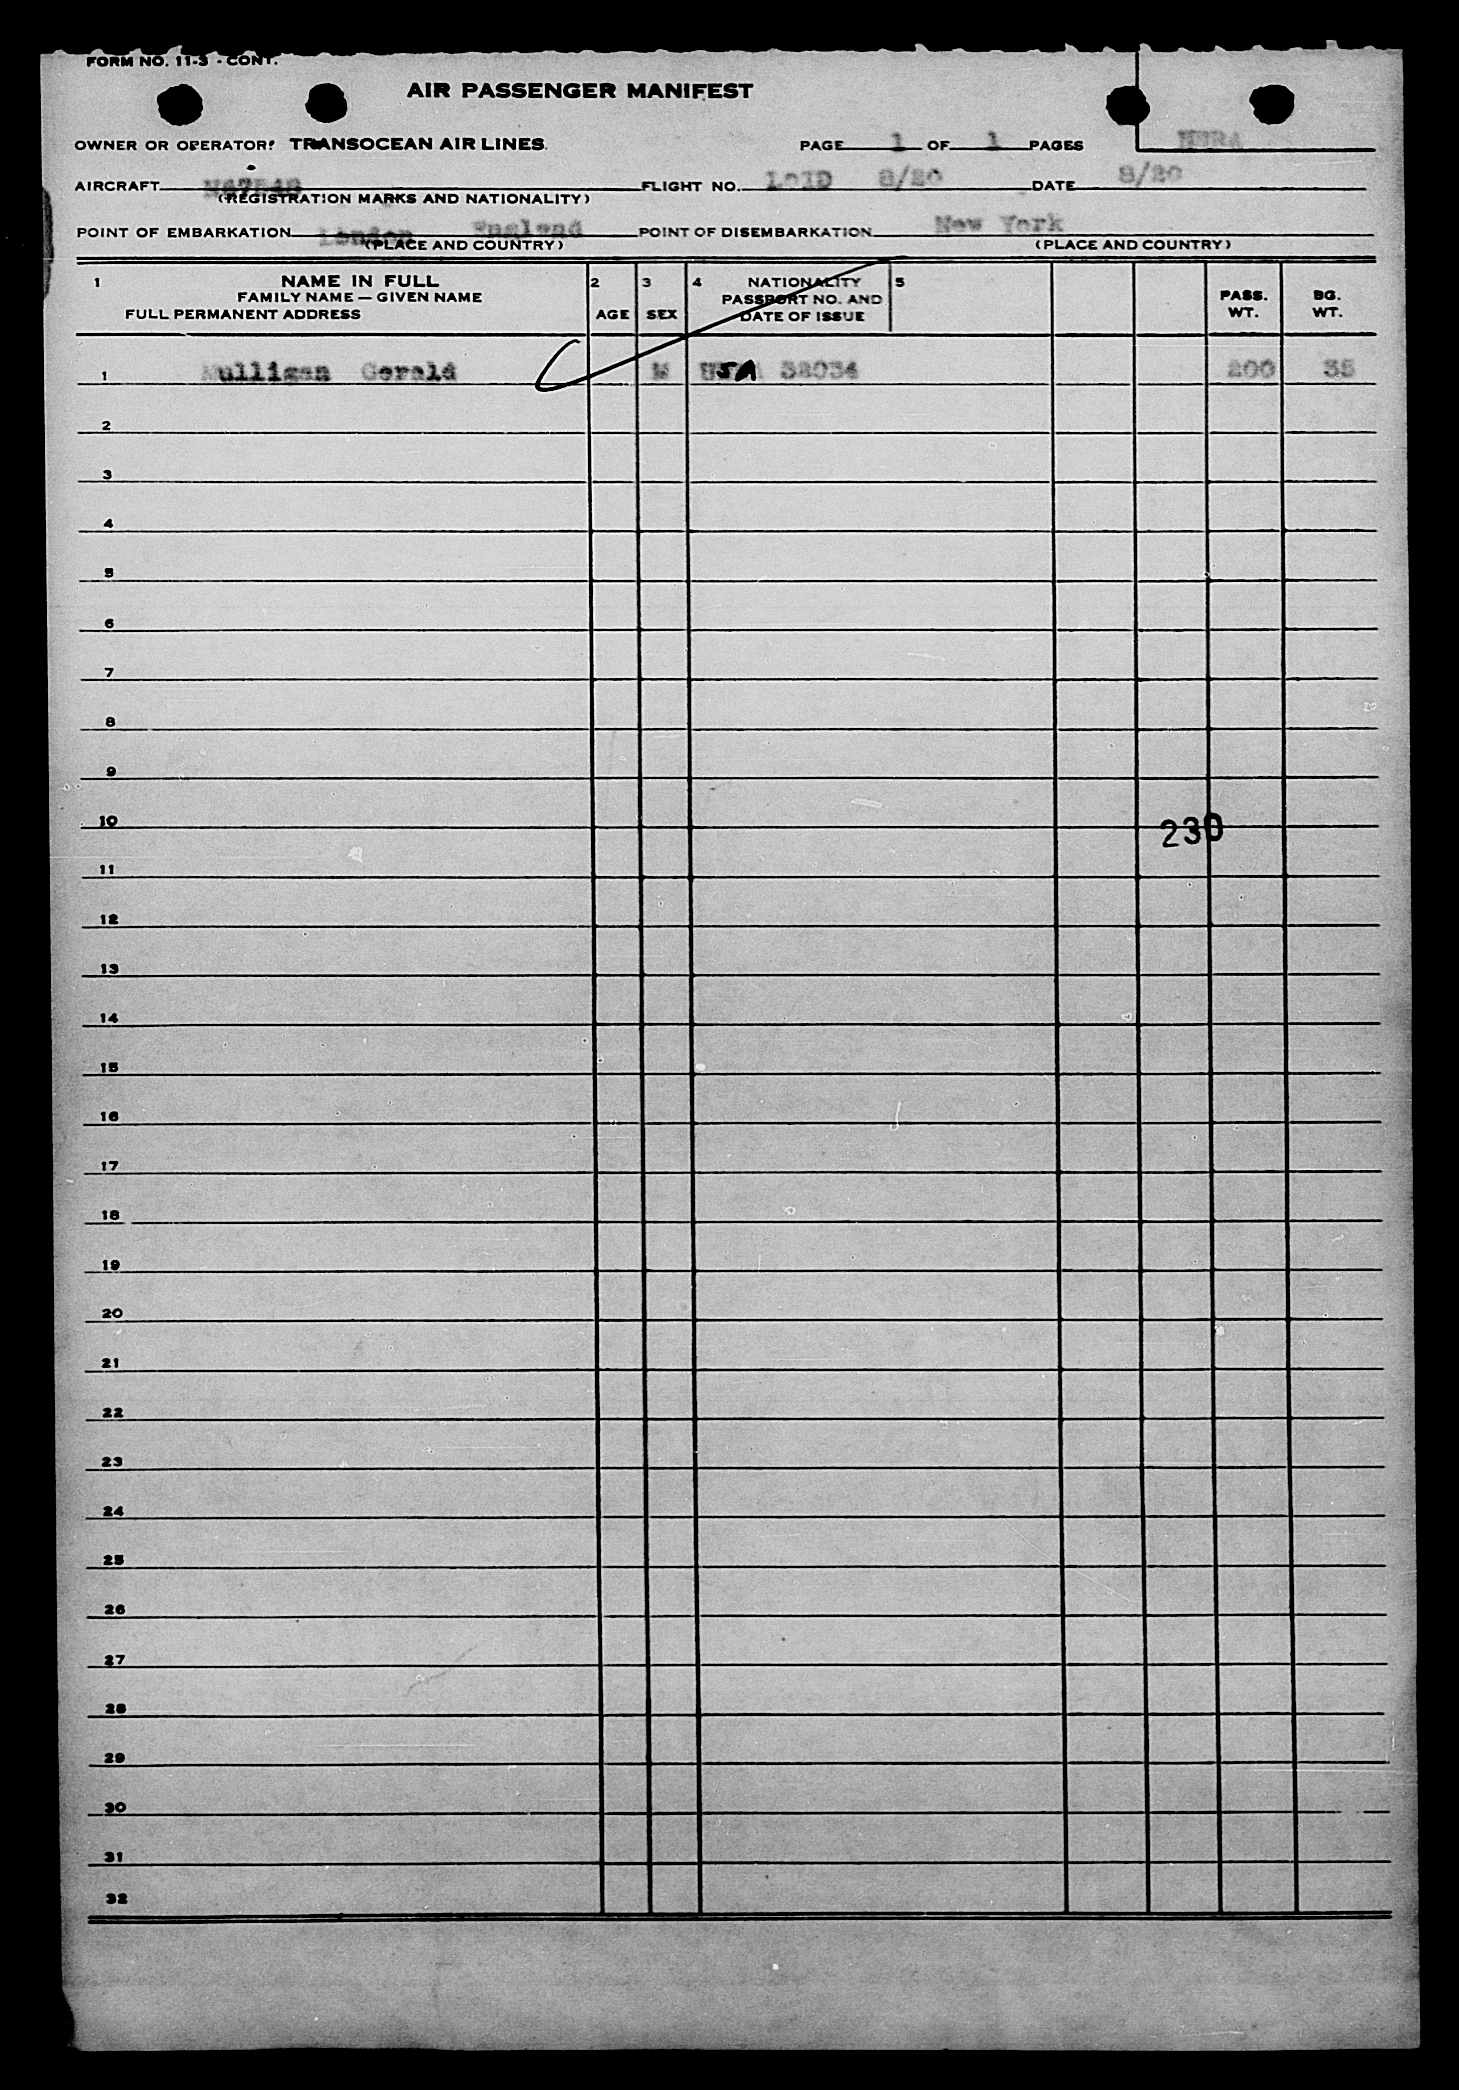 FORM NO. 11-3 - CONT.
AIR PASSENGER MANIFEST
OWNER OR OPERATOR: TRANSOCEAN AIR LINES. PAGE 1 OF 1 PAGES
AIRCRAFT FLIGHT NO. 8/20 DATE 8/20
(REGISTRATION MARKS AND NATIONALITY)
POINT OF EMBARKATION London England POINT OF DISEMBARKATION New York
(PLACE AND COUNTRY) (PLACE AND COUNTRY)
1 NAME IN FULL 2 3 4 NATIONALITY 5
FAMILY NAME — GIVEN NAME PASSPORT NO. AND PASS. BG.
FULL PERMANENT ADDRESS AGE SEX DATE OF ISSUE WT. WT.
1 Mulligan Gerald M USA 32034 200 35
2
3
4
5
6
7
8
9
10 230
11
12
13
14
15
16
17
18
19
20
21
22
23
24
25
26
27
28
29
30
31
32